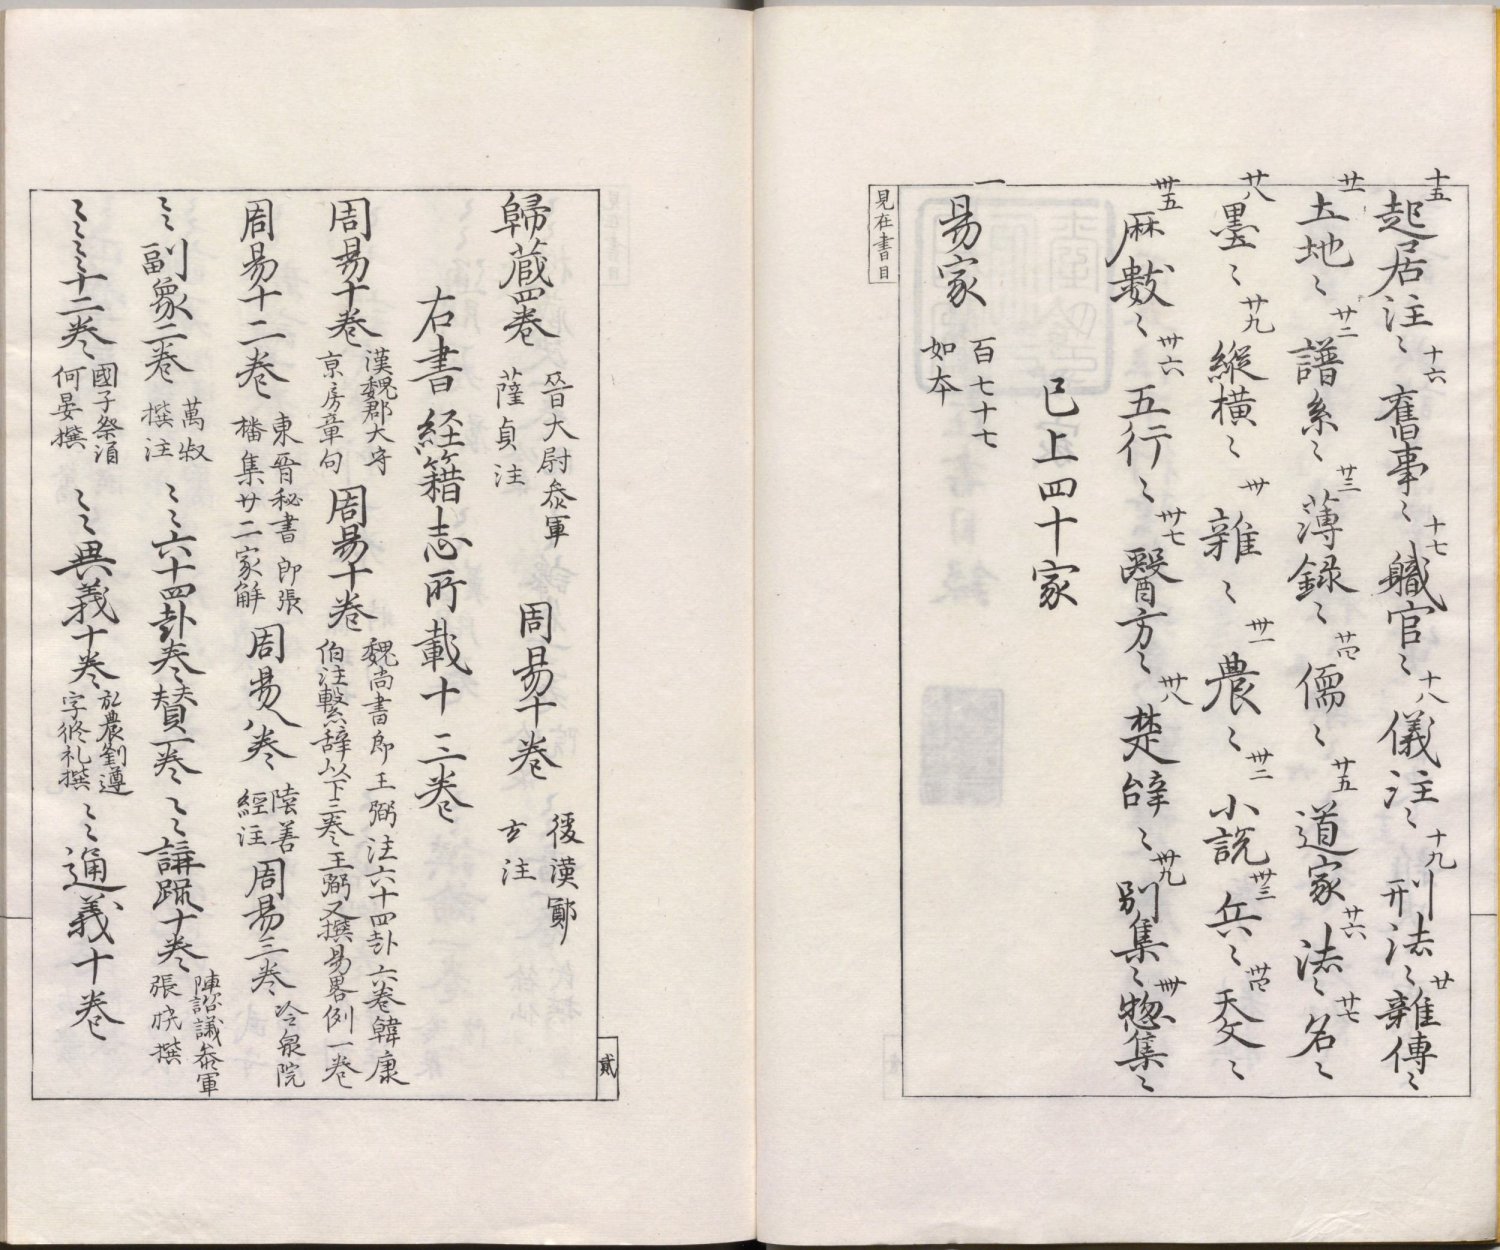 十五 起居注〻 十六 舊事〻 十七 職官〻 十八 儀注〻 十九 刑法〻 廿 雜傳〻
廿一 土地〻 廿二 譜系〻 廿三 薄録〻 廿四 儒〻 廿五 道家 廿六 法〻 廿七 名〻
廿八 墨〻 廿九 縱横〻 卅 雜〻 卅一 農〻 卅二 小説 卅三 兵〻 卅四 天文〻
卅五 暦數〻 卅六 五行〻 卅七 醫方〻 卅八 楚辞〻 卅九 別集〻 卌 惣集〻
已上四十家
一 易家 百七十七
如本
見在書目
歸蔵四巻 晉大尉叅軍
薩貞注 周易十巻 後漢鄭
玄注
右書経籍志所載十三巻
周易十巻 漢魏郡大守
京房章句 周易十巻 魏尚書郎王弼注六十四卦六巻韓康
伯注繫辞以下三巻王弼又撰易畧例一巻
周易十二巻 東晉秘書郎張
璠集廿二家解 周易八巻 陸善
經注 周易三巻 冷泉院
〻〻副象二巻 萬叔
撰注 〻〻六十四卦巻賛一巻 〻〻講疏十巻 陳諮議叅軍
張撰
〻〻〻〻十二巻 國子祭酒
何晏撰 〻〻異義十巻 農劉遵
字修礼撰 〻〻通義十巻
貳